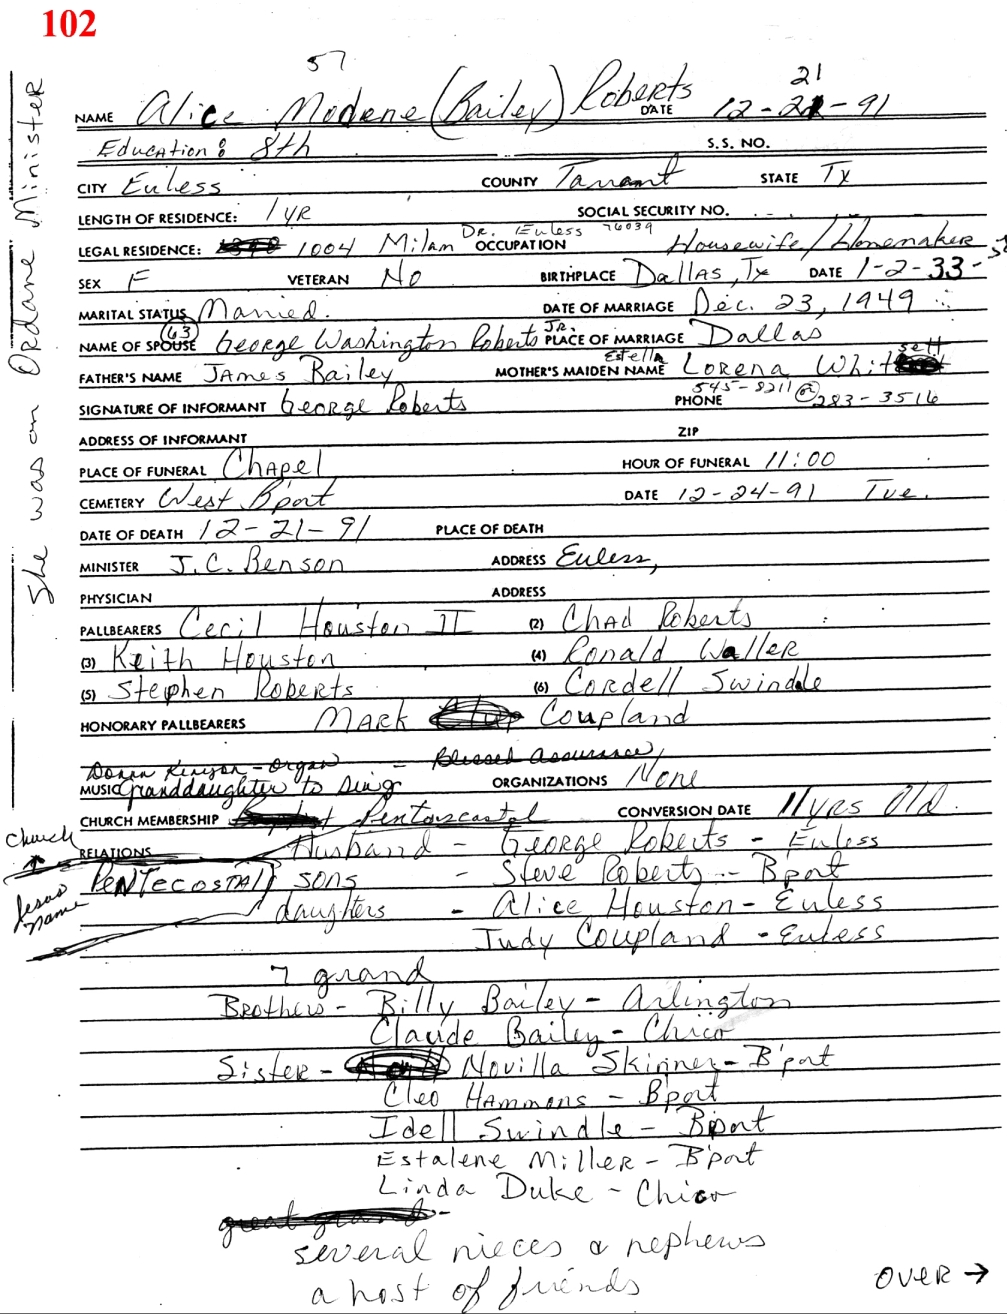 102
57
21
NAME Alice Modene (Bailey) Roberts DATE 12-21-91
Education: 8th S.S. NO.
CITY Euless COUNTY Tarrant STATE Tx
LENGTH OF RESIDENCE: 1 yR SOCIAL SECURITY NO.
LEGAL RESIDENCE: 1004 Milam Dr. Euless 76039 OCCUPATION Housewife/Homemaker
SEX F VETERAN No BIRTHPLACE Dallas, Tx DATE 1-2-33
MARITAL STATUS Married. DATE OF MARRIAGE Dec. 23, 1949
NAME OF SPOUSE (63) George Washington Roberts Jr. PLACE OF MARRIAGE Dallas
FATHER'S NAME James Bailey MOTHER'S MAIDEN NAME Estella Lorena Whitsett
SIGNATURE OF INFORMANT George Roberts PHONE 545-8211 @ 283-3516
ADDRESS OF INFORMANT ZIP
PLACE OF FUNERAL Chapel HOUR OF FUNERAL 11:00
CEMETERY West Bport DATE 12-24-91 Tue.
DATE OF DEATH 12-21-91 PLACE OF DEATH
MINISTER J.C. Benson ADDRESS Euless,
PHYSICIAN ADDRESS
PALLBEARERS Cecil Houston II (2) Chad Roberts
(3) Keith Houston (4) Ronald Waller
(5) Stephen Roberts (6) Cordell Swindle
HONORARY PALLBEARERS MARK Coupland
Donna Kenyon - organ - Blessed Assurance
MUSIC Granddaughter to sing ORGANIZATIONS None
CHURCH MEMBERSHIP Pentorscostol CONVERSION DATE 11 yrs Old.
Church
RELATIONS Husband - George Roberts - Euless
PENTECOSTAL sons - Steve Roberts - Bport
Jesus name
daughters - Alice Houston - Euless
Judy Coupland - Euless
7 grand
Brothers - Billy Bailey - Arlington
Claude Bailey - Chico
Sister - Novilla Skinner - B'port
Cleo Hammons - B'port
Idell Swindle - Bport
Estalene Miller - B'port
Linda Duke - Chico
great grand -
several nieces & nephews
a host of friends
OVER →
She was an Ordane Minister